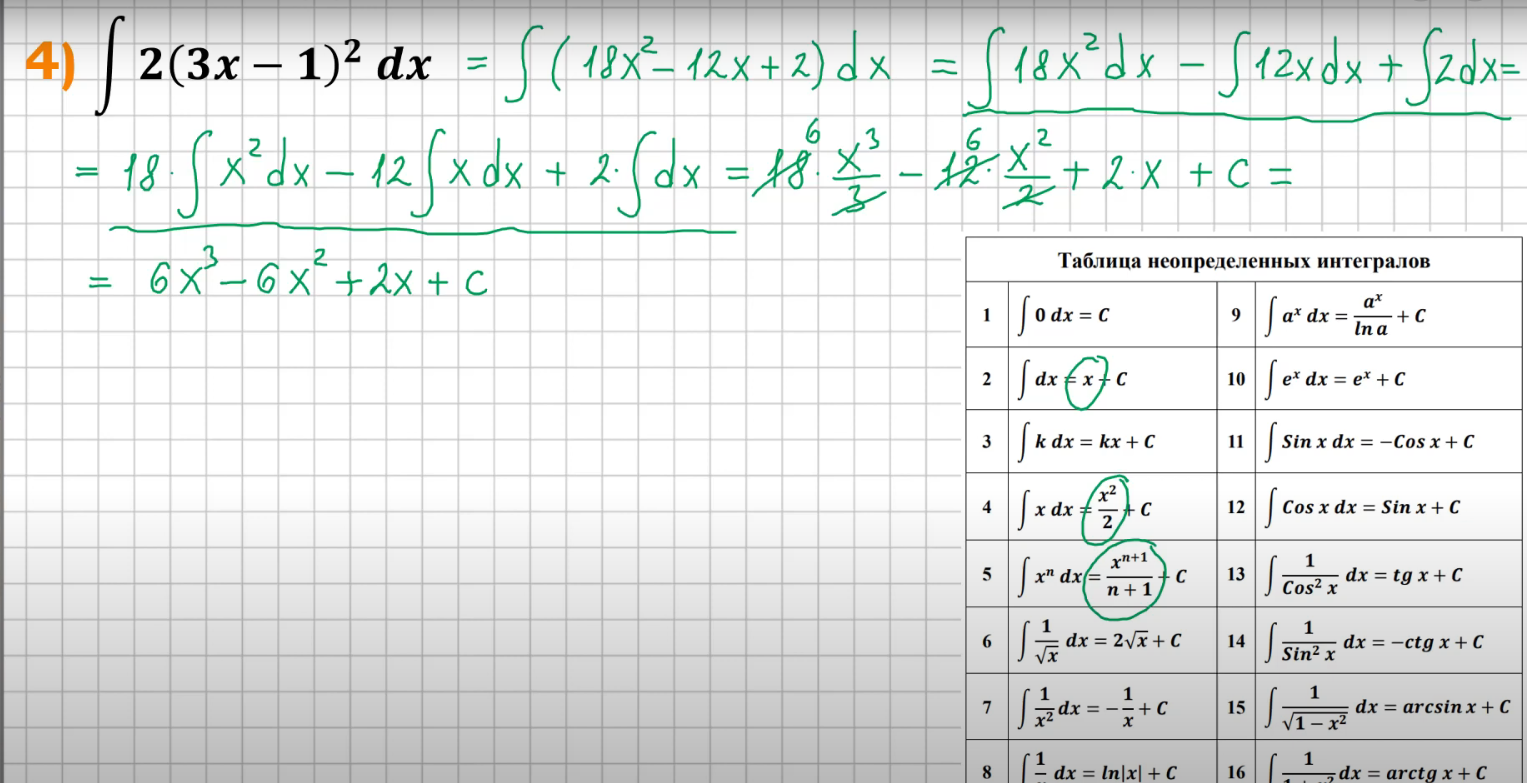 4) ∫ 2(3x − 1)² dx = ∫ (18x² − 12x + 2) dx = ∫ 18x² dx − ∫ 12x dx + ∫ 2dx =
= 18 · ∫ x² dx − 12 ∫ x dx + 2 · ∫ dx = 18 6 · x³/3 − 12 6 · x²/2 + 2 · x + C =
= 6x³ − 6x² + 2x + C
Таблица неопределенных интегралов
1 ∫ 0 dx = C 9 ∫ aˣ dx = aˣ/ln a + C
2 ∫ dx = x + C 10 ∫ eˣ dx = eˣ + C
3 ∫ k dx = kx + C 11 ∫ Sin x dx = −Cos x + C
4 ∫ x dx = x²/2 + C 12 ∫ Cos x dx = Sin x + C
5 ∫ xⁿ dx = xⁿ⁺¹/(n + 1) + C 13 ∫ 1/Cos² x dx = tg x + C
6 ∫ 1/√x dx = 2√x + C 14 ∫ 1/Sin² x dx = −ctg x + C
7 ∫ 1/x² dx = −1/x + C 15 ∫ 1/√(1 − x²) dx = arcsin x + C
8 dx = ln|x| + C 16 dx = arctg x + C